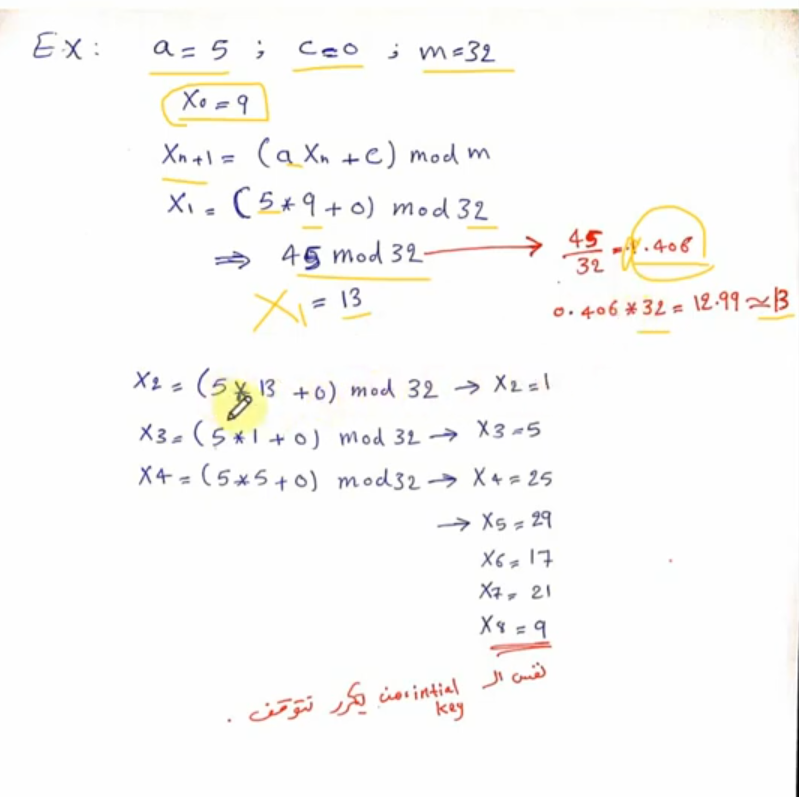 EX: a = 5 ; C=0 ; m=32
X₀ = 9
Xn+1 = (a Xn + C) mod m
X₁ = (5*9+0) mod 32
⇒ 45 mod 32 → 45/32 = 1.406
X₁ = 13
0.406*32 = 12.99 ≃ 13
X2 = (5*13+0) mod 32 → X2=1
X3 = (5*1+0) mod 32 → X3=5
X4 = (5*5+0) mod 32 → X4=25
→ X5 = 29
X6 = 17
X7 = 21
X8 = 9
نفس ال intial
key يكرر نتوقف .